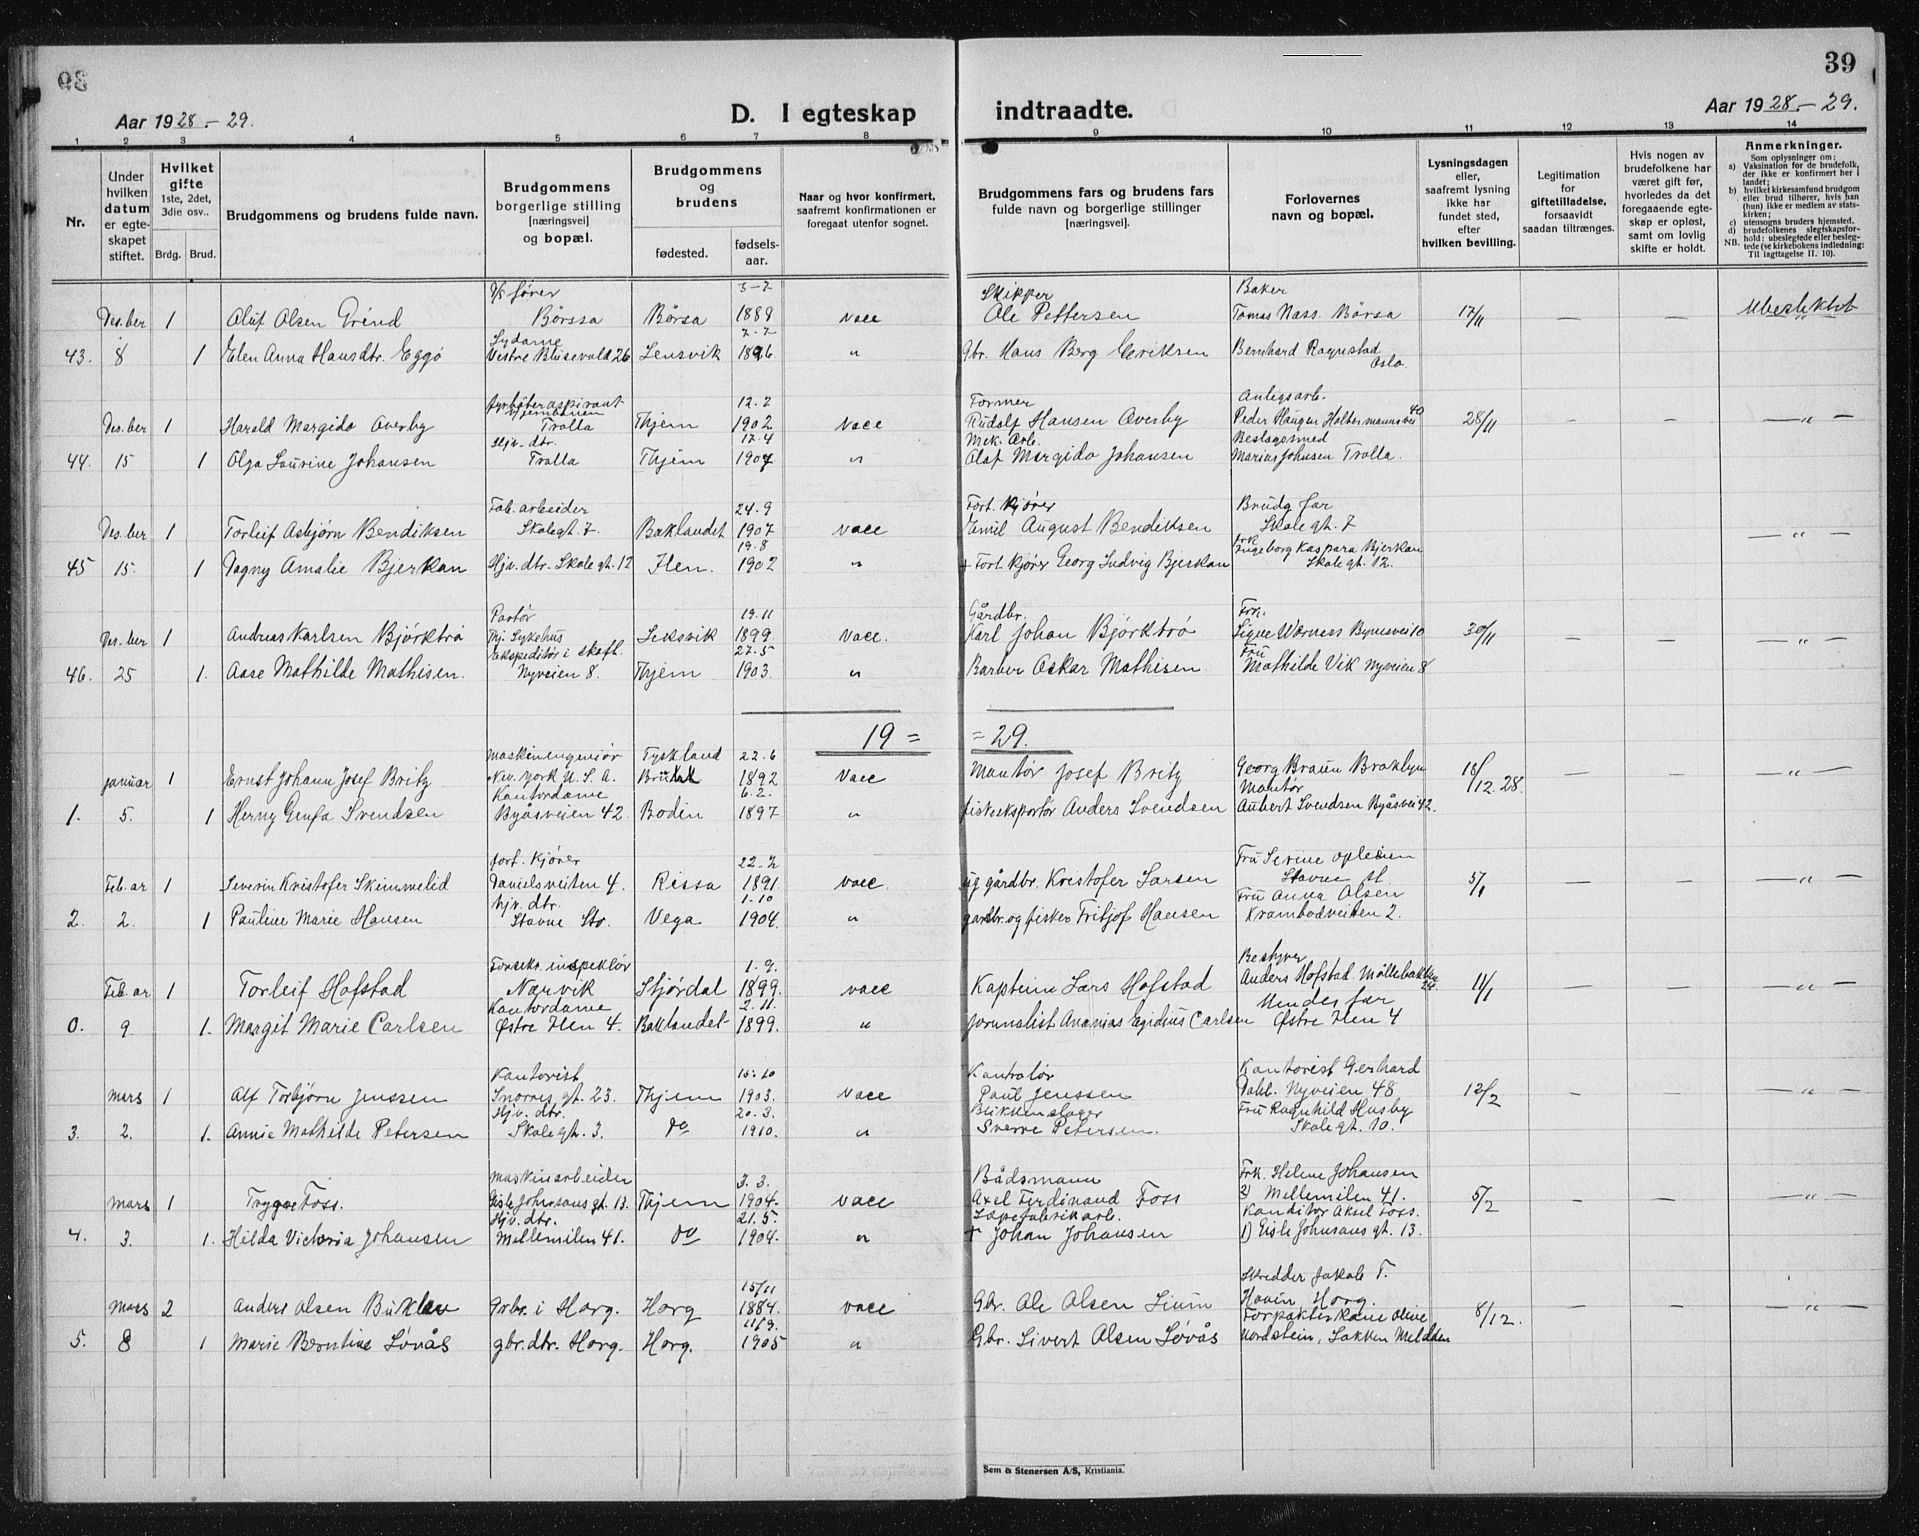 39
Aar 1928.-29.
D. I egteskap indtraadte.
Aar 1928.-29.
1 2 3 4 5 6 7 8 9 10 11 12 13 14
Nr.
Under hvilken datum er egteskapet stiftet.
Hvilket gifte 1ste, 2det, 3die osv..
Brdg. Brud.
Brudgommens og brudens fulde navn.
Brudgommens borgerlige stilling [næringsvei] og bopæl.
Brudgommens og brudens
fødested.
fødselsaar.
Naar og hvor konfirmert, saafremt konfirmationen er foregaat utenfor sognet.
Brudgommens fars og brudens fars fulde navn og borgerlige stillinger [næringsvei].
Forlovernes navn og bopæl.
Lysningsdagen eller, saafremt lysning ikke har fundet sted, efter hvilken bevilling.
Legitimation for giftetilladelse, forsaavidt saadan tiltrænges.
Hvis nogen av brudefolkene har været gift før, hvorledes da det foregaaende egteskap er opløst, samt om lovlig skifte er holdt.
Anmerkninger.
Som oplysninger om:
a) Vaksination for de brudefolk, der ikke er konfirmert her i landet;
b) hvilket kirkesamfund brudgom eller brud tilhører, hvis han (hun) ikke er medlem av statskirken;
c) utensogns bruders hjemsted,
d) brudefolkenes slegtskapsforhold: ubeslegtede eller beslegtede (se kirkebokens indledning:
NB. Til iagttagelse II. 10).
fører 5-7 Skipper Baker
Des.ber 1 Oluf Olsen Grind Børssa Børsa 1889 vacc Ole Pettersen Tomas Nass Børsa 17/11 — — Ubeslektet
Sydame 7-7
43. 8 1 Elen Anna Hansdtr. Eggø Vestre Blusevold 26 Lensvik 1896 " Gbr. Hans Berg Eriksen Bernhard Rognstad Oslo
fyrbøteraspirant 12.2 Former Anlegsarb.
Des.ber 1 Harald Margido Overby Trolla Thjem 1902 vacc Rudolf Hansen Overby Peder Haugen Holtermannsvei 40 28/11 — — — " —
Hjv. dtr. 17.4 Mek. Arb. Beslagsmed
44. 15 1 Olga Laurine Johansen Trolla Thjem 1907 " Olaf Margido Johansen Marius Johnsen Trolla.
Fab. arbeider 24.9 Fort. kjører Brudg far
Des.ber 1 Torleif Asbjørn Bendiksen Skolegt. 7 Baklandet 1907 vacc Emil August Bendiksen Skolegt. 7 — " —
19.8
45 15. 1 Dagny Amalie Bjerkan Hjv. dtr. Skolegt. 12 Ilen. 1902 " + Fort. kjører Georg Ludvig Bjerkan Frk Ingeborg Kaspara Bjerkan Skolegt. 12.
Portør 19.11 Gårdbr. Frk.
Des.ber 1 Andreas Karlsen Bjørktrø Thj. Sykehus Leksvik 1899. Vacc. Karl Johan Bjørktrø Signe Wærness Bynesvei 10 30/11 — — — " —
Ekspeditør i skofl. 27.5 Fru
46. 25 1. Aase Mathilde Mathisen. Nyveien 8. Thjem 1903. " Barber Oskar Mathisen. Mathilde Vik Nyveien 8
19 = = 29.
Maskiningeniør Tyskland 22.6
Januar 1 Ernst Johann Josef Britz New York U.S.A. 1892 Vacc Montør Josef Britz Georg Braun Broklyn 18/12.28. — — — " —
Kontordame 6.2. Montør
1. 5. 1 Herny Genfa Svendsen Byåsveien 42 Bodin 1897 " fiskeksportør Anders Svendsen Aubert Svendsen Byåsvei 42.
fort. kjører 22-7 Fru Serine
Feb.ar 1 Severin Kristofer Skimmelid Danielsveiten 4. Rissa 1891 vacc. gårdbr. Kristofer Larsen Stavne st. 5/1 — — — " —
hjv. dtr. 1.10 Fru Anna Olsen
2. 2. 1 Pauline Marie Hansen Stavne Sto. Vega 1904. " gårdbr. og fisker Fritjof Hansen Krambodveiten 2.
Forsikr. inspektør 1.9. Bestyrer
Feb.ar 1 Torleif Hofstad Narvik Stjørdal 1899. vacc Kaptein Lars Hofstad Anders Hofstad Møllebakken 11/1 — — — " —
Kontordame 2.11
0. 9 1. Margit Marie Carlsen Østre Ilen 4. Baklandet 1899. " journalist Ananias Egidius Carlsen Østre Ilen 4
Kontorist 15.10 Kontrolør Kontorist Gerhard
Mars 1 Alf Torbjørn Jenssen Snorres gt. 23. Thjem 1903. vacc Paul Jenssen Dahl. Nyveien 48 12/2 — — — " —
Hjv. dtr. 20.3. Blikkenslager Fru Ragnhild Husby
3. 2. 1. Annie Mathilde Petersen Skolegt. 3. do 1910. " Sverre Petersen. Skolegt. 10.
Maskinarbeider 3.3. Bådsmann Frk. Helene Johansen
Mars 1 Trygve Foss. Gisle Johnsons gt. 13. Thjem 1904. vacc Axel Ferdinand Foss 2) Mellemilen 41. 5/2 — — — " —
Hjv. dtr. 21.5. Sæpefabrikarb. Konditor Aksel Foss.
4. 3. 1. Hilda Victoria Johansen Mellemilen 41. do 1904. " + Johan Johansen 1) Gisle Johnsons gt. 13.
15/11 Skredder Jakob T.
Mars 2 Anders Olsen Grbr. i Horg. Horg 1884. vacc Gbr. Ole Olsen Havin Horg. 8/12. — — — " —
11/9.
5. 8 1 Marie Berntine Løvås gbr. dtr. Horg. Horg. 1905 " Gbr. Sivert Olsen Løvås
Sem & Stenersen A/S, Kristiania.